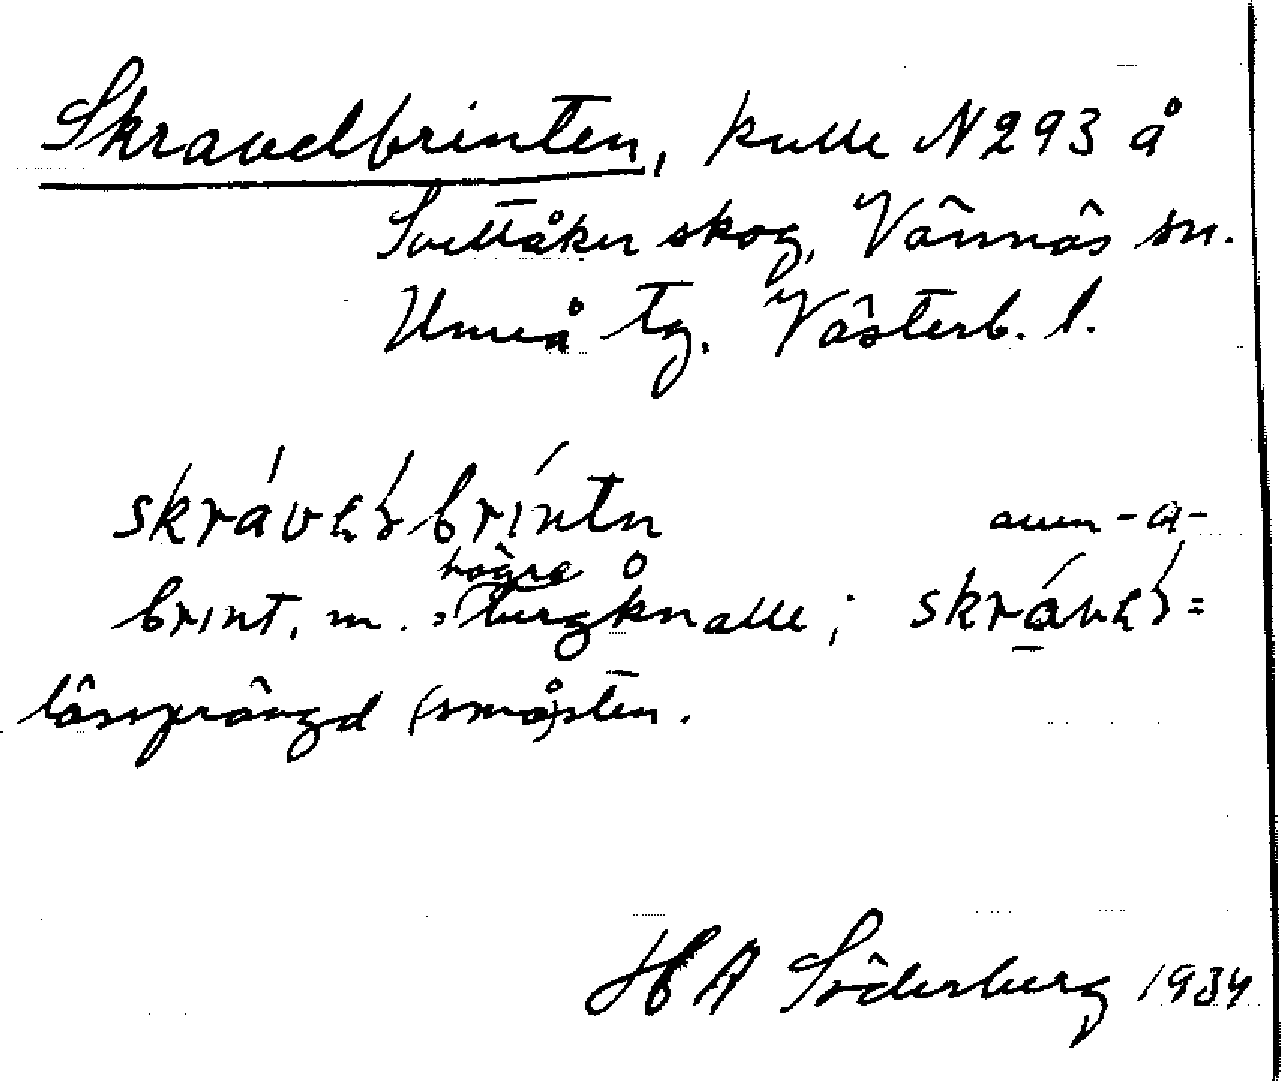 Skravelbrinten, kulle N 293 å
Svettåker skog, Vännäs sn.
Umeå tg. Västerb. l.
brintn
även -a-
högre
brint, m. = bergknalle;
lössprängd (små)sten.
H A Söderberg 1934